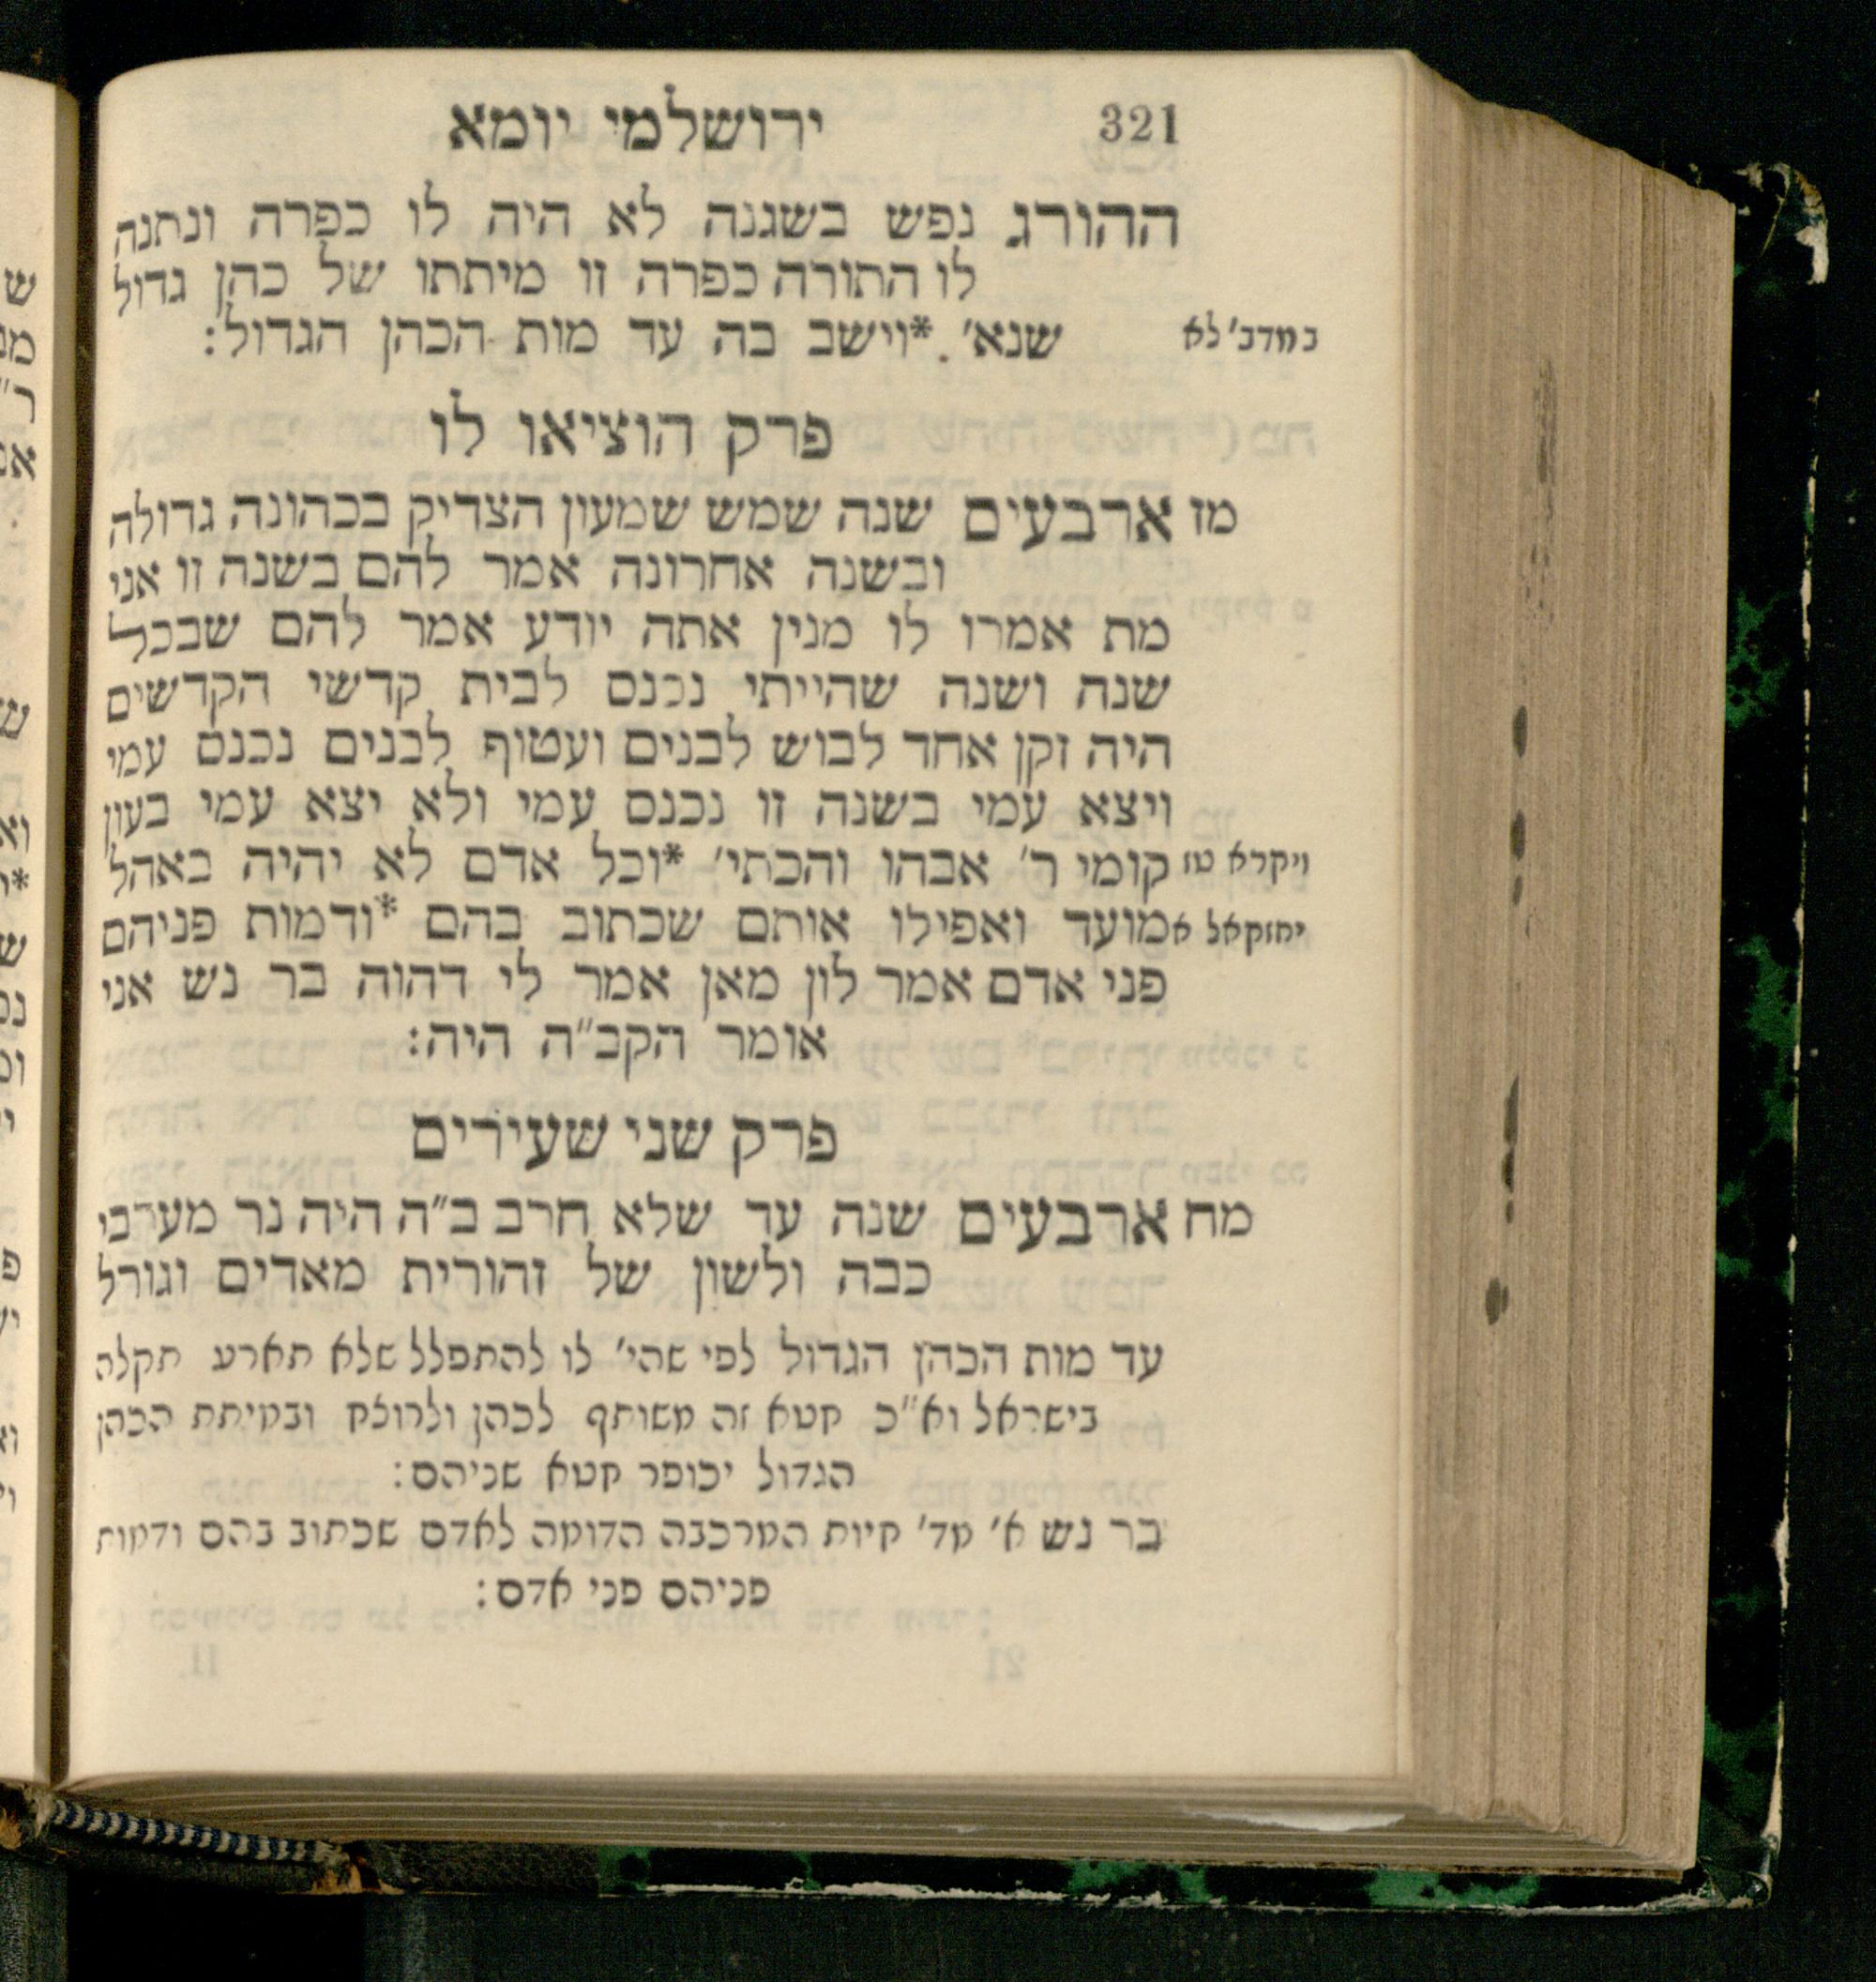 321 ירושלמי יומא
ההורג נפש בשגגה לא היה לו כפרה ונתנה
לו התורה כפרה זו מיתתו של כהן גדול
במדב' לא שנא'. *וישב בה עד מות הכהן הגדול:
פרק הוציאו לו
מז ארבעים שנה שמש שמעון הצדיק בכהונה גדולה
ובשנה אחרונה אמר להם בשנה זו אני
מת אמרו לו מנין אתה יודע אמר להם שבכל
שנה ושנה שהייתי נכנס לבית קדשי הקדשים
היה זקן אחד לבוש לבנים ועטוף לבנים נכנס עמי
ויצא עמי בשנה זו נכנס עמי ולא יצא עמי בעון
ויקרא טז קומי ר' אבהו והכתי' *וכל אדם לא יהיה באהל
יחזקאל א מועד ואפילו אותם שכתוב בהם *ודמות פניהם
פני אדם אמר לון מאן אמר לי דהוה בר נש אני
אומר הקב"ה היה:
פרק שני שעירים
מח ארבעים שנה עד שלא חרב ב"ה היה נר מערבי
כבה ולשון של זהורית מאדים וגורל
עד מות הכהן הגדול לפי שהי' לו להתפלל שלא תארע תקלה
בישראל וא"כ חטא זה משותף לכהן ולרוצח ובמיתת הכהן
הגדול יכופר חטא שניהם:
בר נש א' מד' חיות המרכבה הדומה לאדם שכתוב בהם ודמות
פניהם פני אדם: